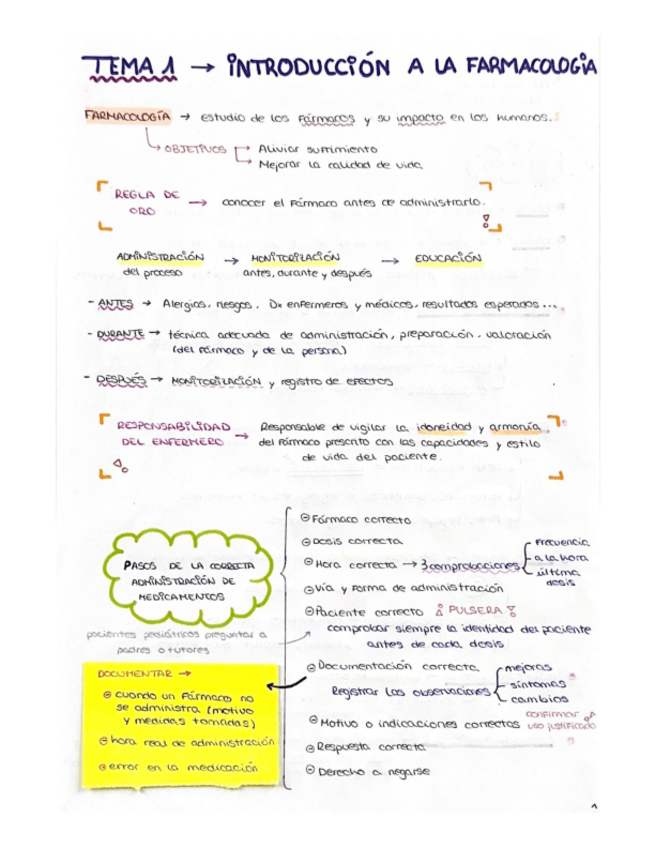 TEMA 1 → INTRODUCCIÓN A LA FARMACOLOGÍA
FARMACOLOGÍA → estudio de los fármacos y su impacto en los humanos.
OBJETIVOS → Aliviar sufrimiento
→ Mejorar la calidad de vida
REGLA DE ORO → conocer el fármaco antes de administrarlo.
ADMINISTRACIÓN → MONITORIZACIÓN → EDUCACIÓN
del proceso antes, durante y después
- ANTES → Alergias, riesgos, Dx enfermeros y médicos, resultados esperados...
- DURANTE → técnica adecuada de administración, preparación, valoración
(del fármaco y de la persona)
- DESPUÉS → MONITORIZACIÓN y registro de efectos
RESPONSABILIDAD DEL ENFERMERO → Responsable de vigilar la idoneidad y armonía
del fármaco prescrito con las capacidades y estilo
de vida del paciente.
PASOS DE LA CORRECTA
ADMINISTRACIÓN DE
MEDICAMENTOS
Fármaco correcto
Dosis correcta
Hora correcta → 3 comprobaciones
Frecuencia
a la hora
última
dosis
Vía y forma de administración
Paciente correcto ¡PULSERA!
comprobar siempre la identidad del paciente
antes de cada dosis
pacientes pediátricos preguntar a
padres o tutores
Documentación correcta
Registrar las observaciones
mejoras
síntomas
cambios
Motivo o indicaciones correctas
confirmar
uso justificado
Respuesta correcta
Derecho a negarse
DOCUMENTAR →
cuando un fármaco no
se administra (motivo
y medidas tomadas)
hora real de administración
error en la medicación
1